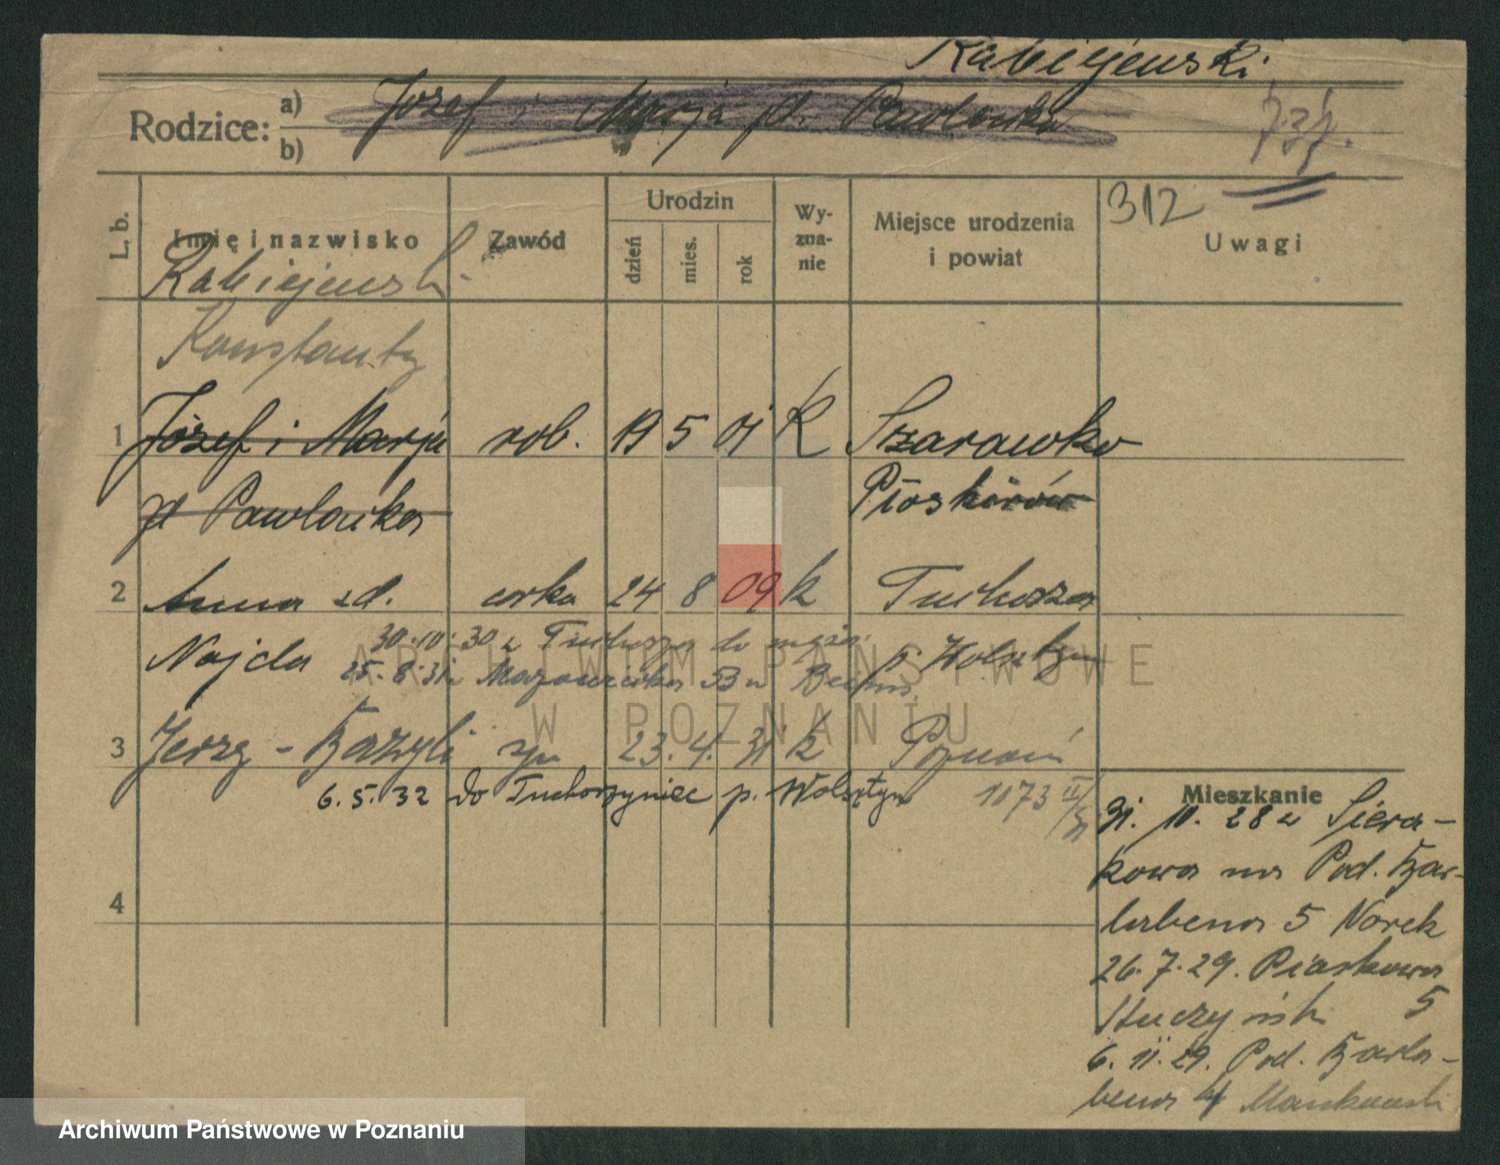 Rabiejewski
Rodzice:
a)
b)
Józef i Marja zd. Pawłowska
737.
L. b.
Imię i nazwisko
Zawód
Urodzin
dzień
mies.
rok
Wy-
zna-
nie
Miejsce urodzenia
i powiat
312
Uwagi
Rabiejewski
Konstanty
1 Józef i Marja rob. 19 5 01 K Szarawka
zd Pawłowska Płoskirów
2 Anna zd. córka 24 8 09 k Tuchorza
Najda p. Wolsztyn
30.10.30 z Tuchorza do męża
25.8.31 Mazowiecka
3 Jerzy - Bazyli syn 23. 4. 31 k Poznań
6.5.32 do Tuchorzyniec p. Wolsztyn 1073 II/31
4
Mieszkanie
31. 10. 28 z Siera-
kowa na Pod. Bar-
barbena 5 Norek
26.7.29. Piaskowa
5
6. 11. 29. Pod.
4 Mankowski
ARCHIWUM PAŃSTWOWE
W POZNANIU
Archiwum Państwowe w Poznaniu